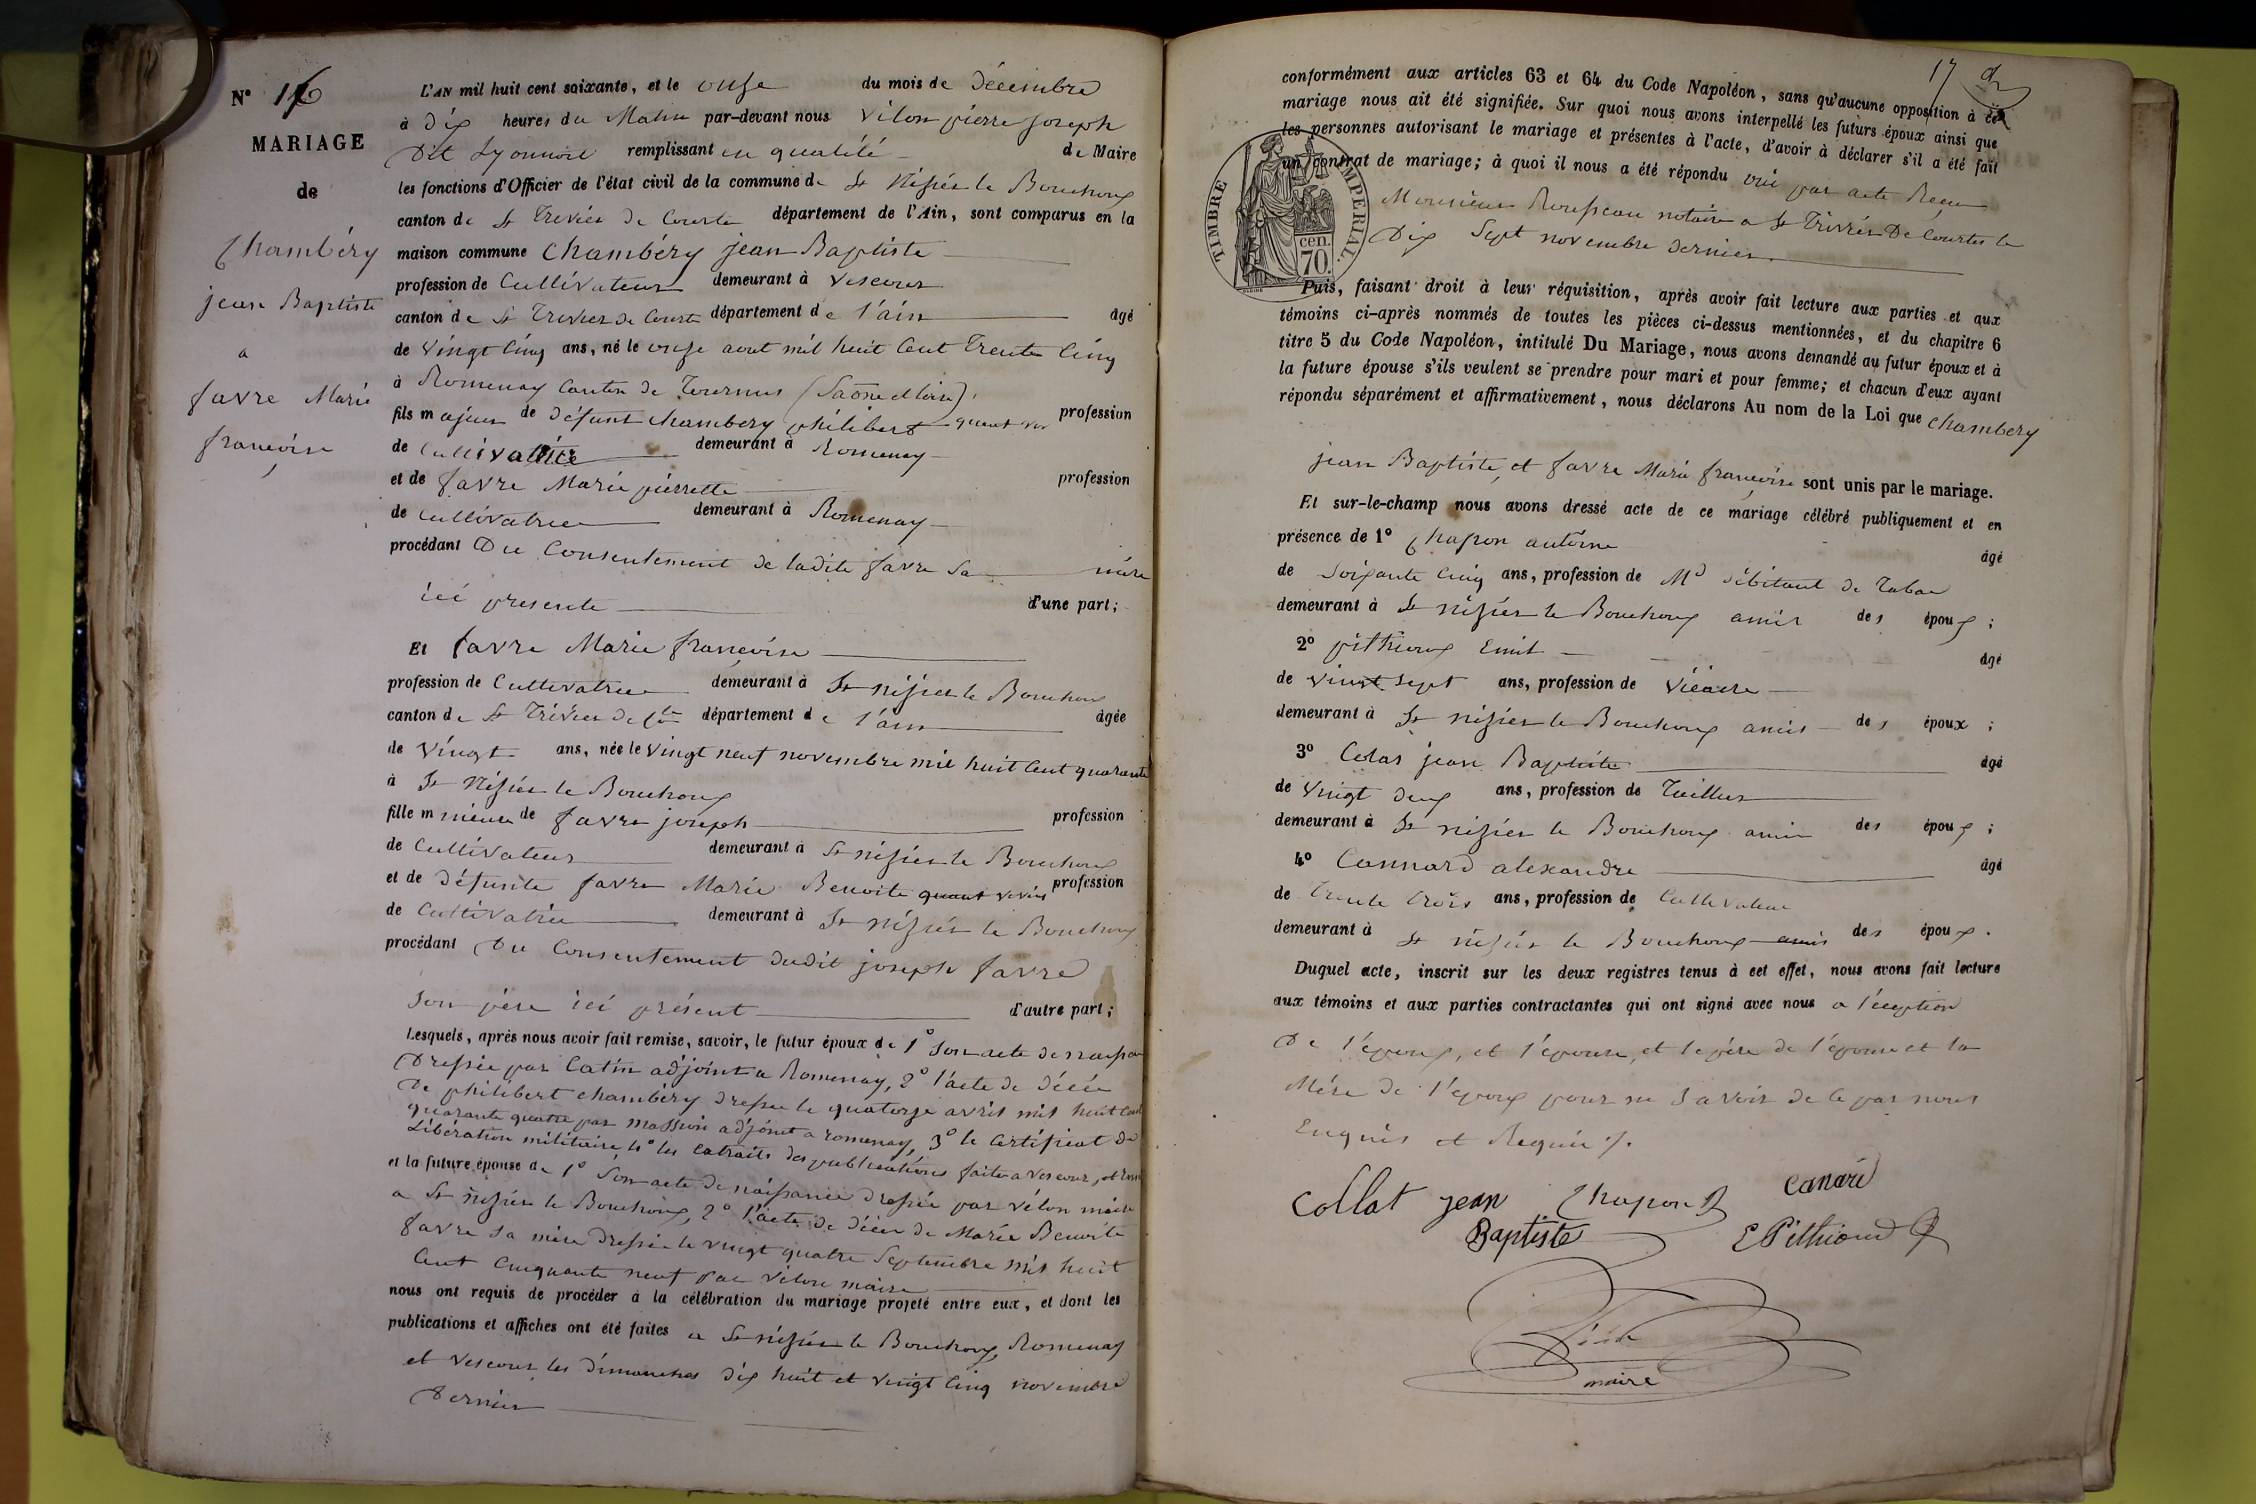 N° 16
MARIAGE
de
Chambéry
jean Baptiste
a
favre Marie
francoise
L'AN mil huit cent soixante, et le onze du mois de Décembre
à Dix heures du Matin par-devant nous Vélon pierre joseph
Dit Lyonnois remplissant en qualité de Maire
les fonctions d'Officier de l'état civil de la commune de St Nizier le Bouchoux
canton de St Trivier de Courte département de l'Ain, sont comparus en la
maison commune Chambéry jean Baptiste
profession de Cultivateur demeurant à Vescour
canton de St Trivier de Courte département de l'ain âgé
de vingt Cinq ans, né le onze aout mil huit Cent Trente Cinq
à Romenay Canton de Tournus (Saône et loire)
fils majeur de Défunt chambéry philibert quant vi profession
de Cultivatrice demeurant à Romenay
et de favre Marie pierrette profession
de Cultivatrice demeurant à Romenay
procédant Du Consentement de ladite favre Sa mère
ici presente d'une part;
Et favre Marie francoise
profession de Cultivatrice demeurant à St nizier le Bouchoux
canton de St Trivier de Cte département de l'ain âgée
de Vingt ans, née le vingt neuf novembre mil huit Cent quarante
à St Nizier le Bouchoux
fille mineure de favre joseph profession
de Cultivateur demeurant à St nizier le Bouchoux
et de défunte favre Marie Benoite quant vivais profession
de Cultivatrice demeurant à St nizier le Bouchoux
procédant Du Consentement dudit joseph favre
Son père ici présent d'autre part;
Lesquels, après nous avoir fait remise, savoir, le futur époux de 1° Son acte de naissan
Dressée par Catin adjoint a Romenay, 2° l'acte de décée
De philibert chambéry dressee le quatorze avril mil huit Cent
quarante quatre par Massion adjoint a romenay, 3° le Certificat de
Libération militaire, 4° les extraits des publications faite a vescour, et
et la future épouse de 1° Son acte de naissance dressée par vélon maire
a St nizier le Bouchoux, 2° l'acte de décée de Marie Benoite
favre sa mère Dressée le vingt quatre Septembre mil huit
Cent Cinquante neuf par Vélon maire
nous ont requis de procéder à la célébration du mariage projeté entre eux, et dont les
publications et affiches ont été faites a St nizier le Bouchoux, Romenay
et vescour les dimanches dix huit et vingt Cinq novembre
Dernier
17
conformément aux articles 63 et 64 du Code Napoléon, sans qu'aucune opposition à ce
mariage nous ait été signifiée. Sur quoi nous avons interpellé les futurs époux ainsi que
les personnes autorisant le mariage et présentes à l'acte, d'avoir à déclarer s'il a été fait
un contrat de mariage; à quoi il nous a été répondu oui par acte Recu
Monsieur Rousseau notaire a St Trivier De Courtes le
Dix Sept novembre dernier
TIMBRE IMPÉRIAL.
70 cen.
Puis, faisant droit à leur réquisition, après avoir fait lecture aux parties et aux
témoins ci-après nommés de toutes les pièces ci-dessus mentionnées, et du chapitre 6
titre 5 du Code Napoléon, intitulé Du Mariage, nous avons demandé au futur époux et à
la future épouse s'ils veulent se prendre pour mari et pour femme; et chacun d'eux ayant
répondu séparément et affirmativement, nous déclarons Au nom de la Loi que chambéry
jean Baptiste, et favre Marie francoise sont unis par le mariage.
Et sur-le-champ nous avons dressé acte de ce mariage célébré publiquement et en
présence de 1° Chapon antoine âgé
de Soixante Cinq ans, profession de Md débitant de Tabac
demeurant à St nizier le Bouchoux amis des époux;
2° pithioux Emil âgé
de vingt Sept ans, profession de Vicaire
demeurant à St nizier le Bouchoux amis des époux;
3° Colas jean Baptiste âgé
de Vingt deux ans, profession de Tailleur
demeurant à St nizier le Bouchoux amis des époux;
4° Cannard alexandre âgé
de Trente Trois ans, profession de Cultivateur
demeurant à St nizier le Bouchoux amis des époux.
Duquel acte, inscrit sur les deux registres tenus à cet effet, nous avons fait lecture
aux témoins et aux parties contractantes qui ont signé avec nous a l'éception
De l'époux, et l'épouse, et le père de l'épouse et la
Mère de l'époux pour ne Savoir de ce par nous
Enquis et Requis
Collat jean Baptiste
Chapon
Canard
E Pithioud
maire